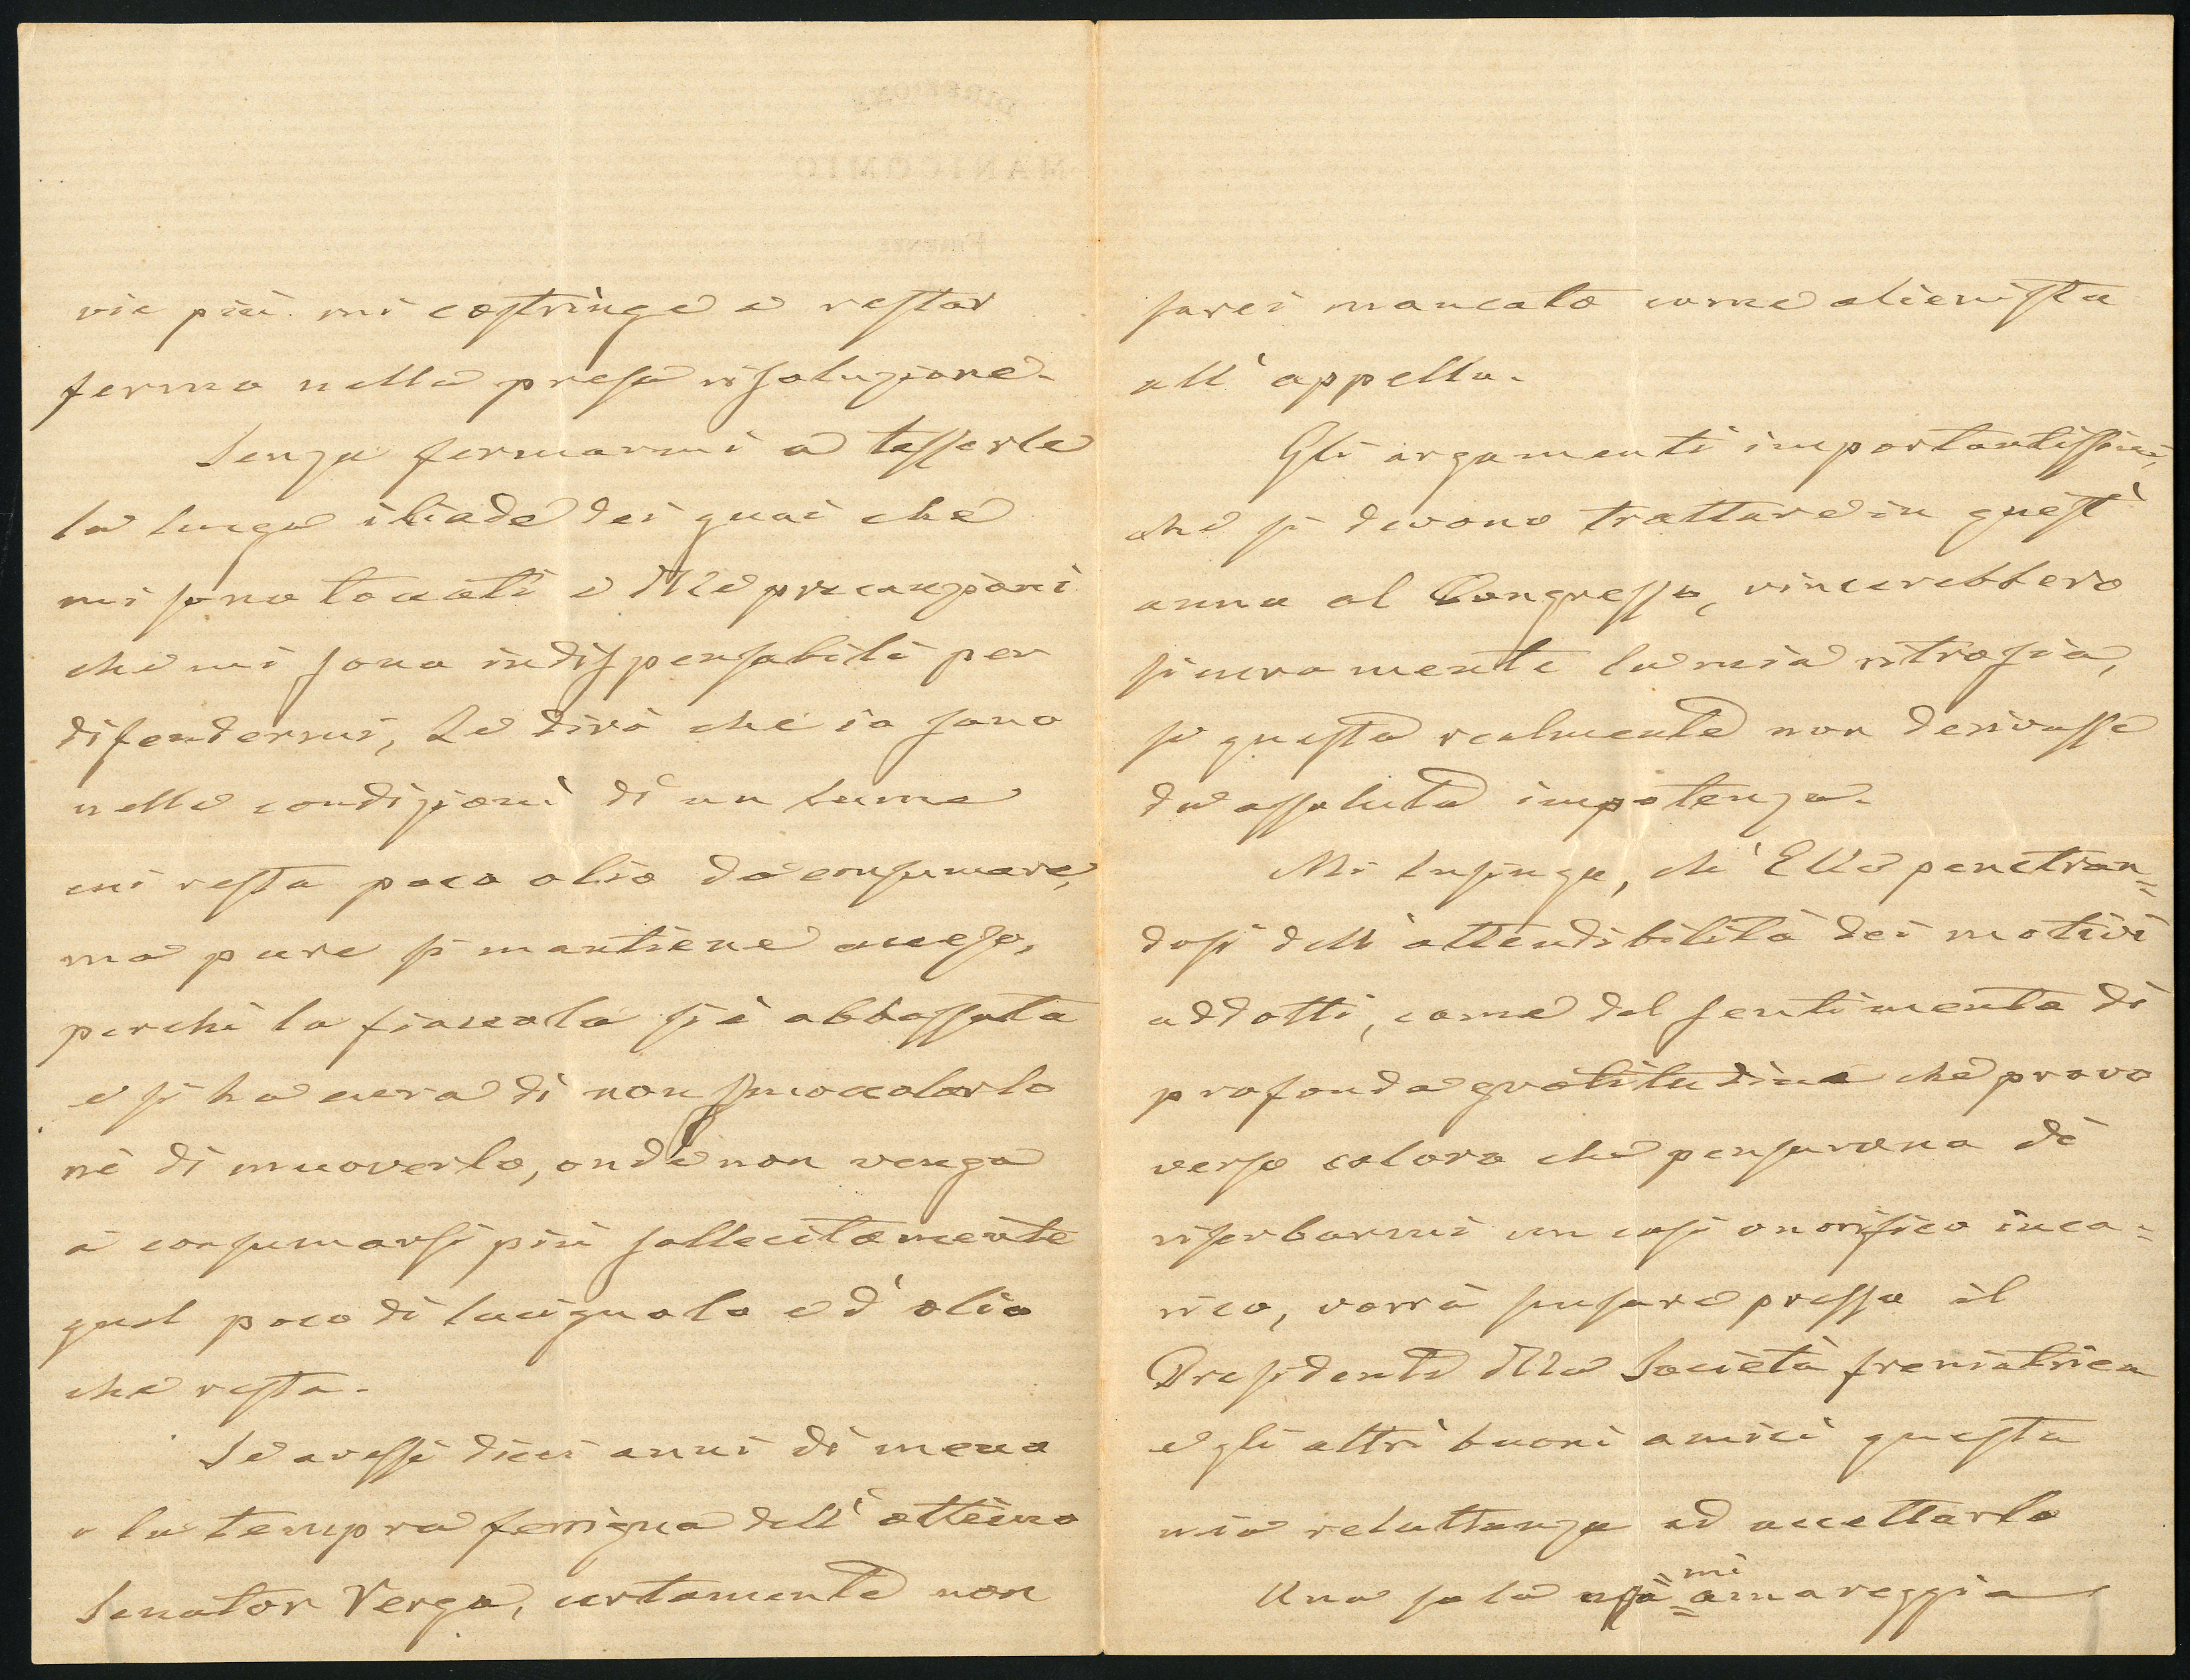 vie più mi costringe a restar
fermo nella presa risoluzione.
Senza fermarmi a tesserle
la lunga iliade dei guai che
mi sono toccati e delle precauzioni
che mi sono indispensabili per
difendermi, Le dirò che io sono
nelle condizioni di un lume
cui resta poco olio da consumare,
ma pure si mantiene acceso,
perchè la fiaccola si è abbassata
e si ha cura di non smoccolarlo
nè di muoverlo, onde non venga
a consumarsi più sollecitamente
quel poco di lucignolo e d'olio
che resta.
Se avessi dieci anni di meno
e la tempra ferrigna dell'ottimo
Senator Verga, certamente non
sarei mancato come alienista
all'appello.
Gli argomenti importantissimi,
che si devono trattare in quest'
anno al Congresso, vincerebbero
sicuramente la mia ritrosia,
se questa realmente non derivasse
da assoluta impotenza.
Mi lusingo, ch'Ella penetran=
dosi dell'attendibilità dei motivi
addotti, come del sentimento di
profonda gratitudine che provo
verso coloro che pensarono di
riserbarmi un così onorifico inca=
rico, vorrà scusare presso il
Presidente della Società freniatrica
e gli altri buoni amici questa
mia reluttanza ad accettarlo
mi
Una sola cosa amareggia
DIREZIONE
MANICOMIO
FIRENZE